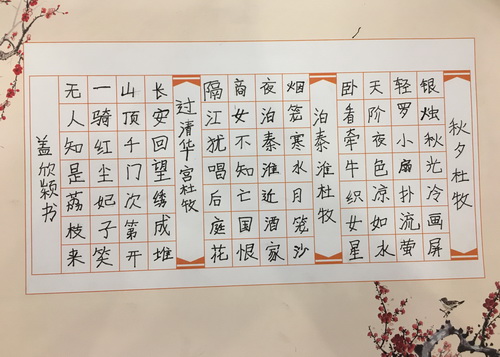 秋夕杜牧
银烛秋光冷画屏
轻罗小扇扑流萤
天阶夜色凉如水
卧看牵牛织女星
泊秦淮杜牧
烟笼寒水月笼沙
夜泊秦淮近酒家
商女不知亡国恨
隔江犹唱后庭花
过清华宫杜牧
长安回望绣成堆
山顶千门次第开
一骑红尘妃子笑
无人知是荔枝来
盖欣颖书